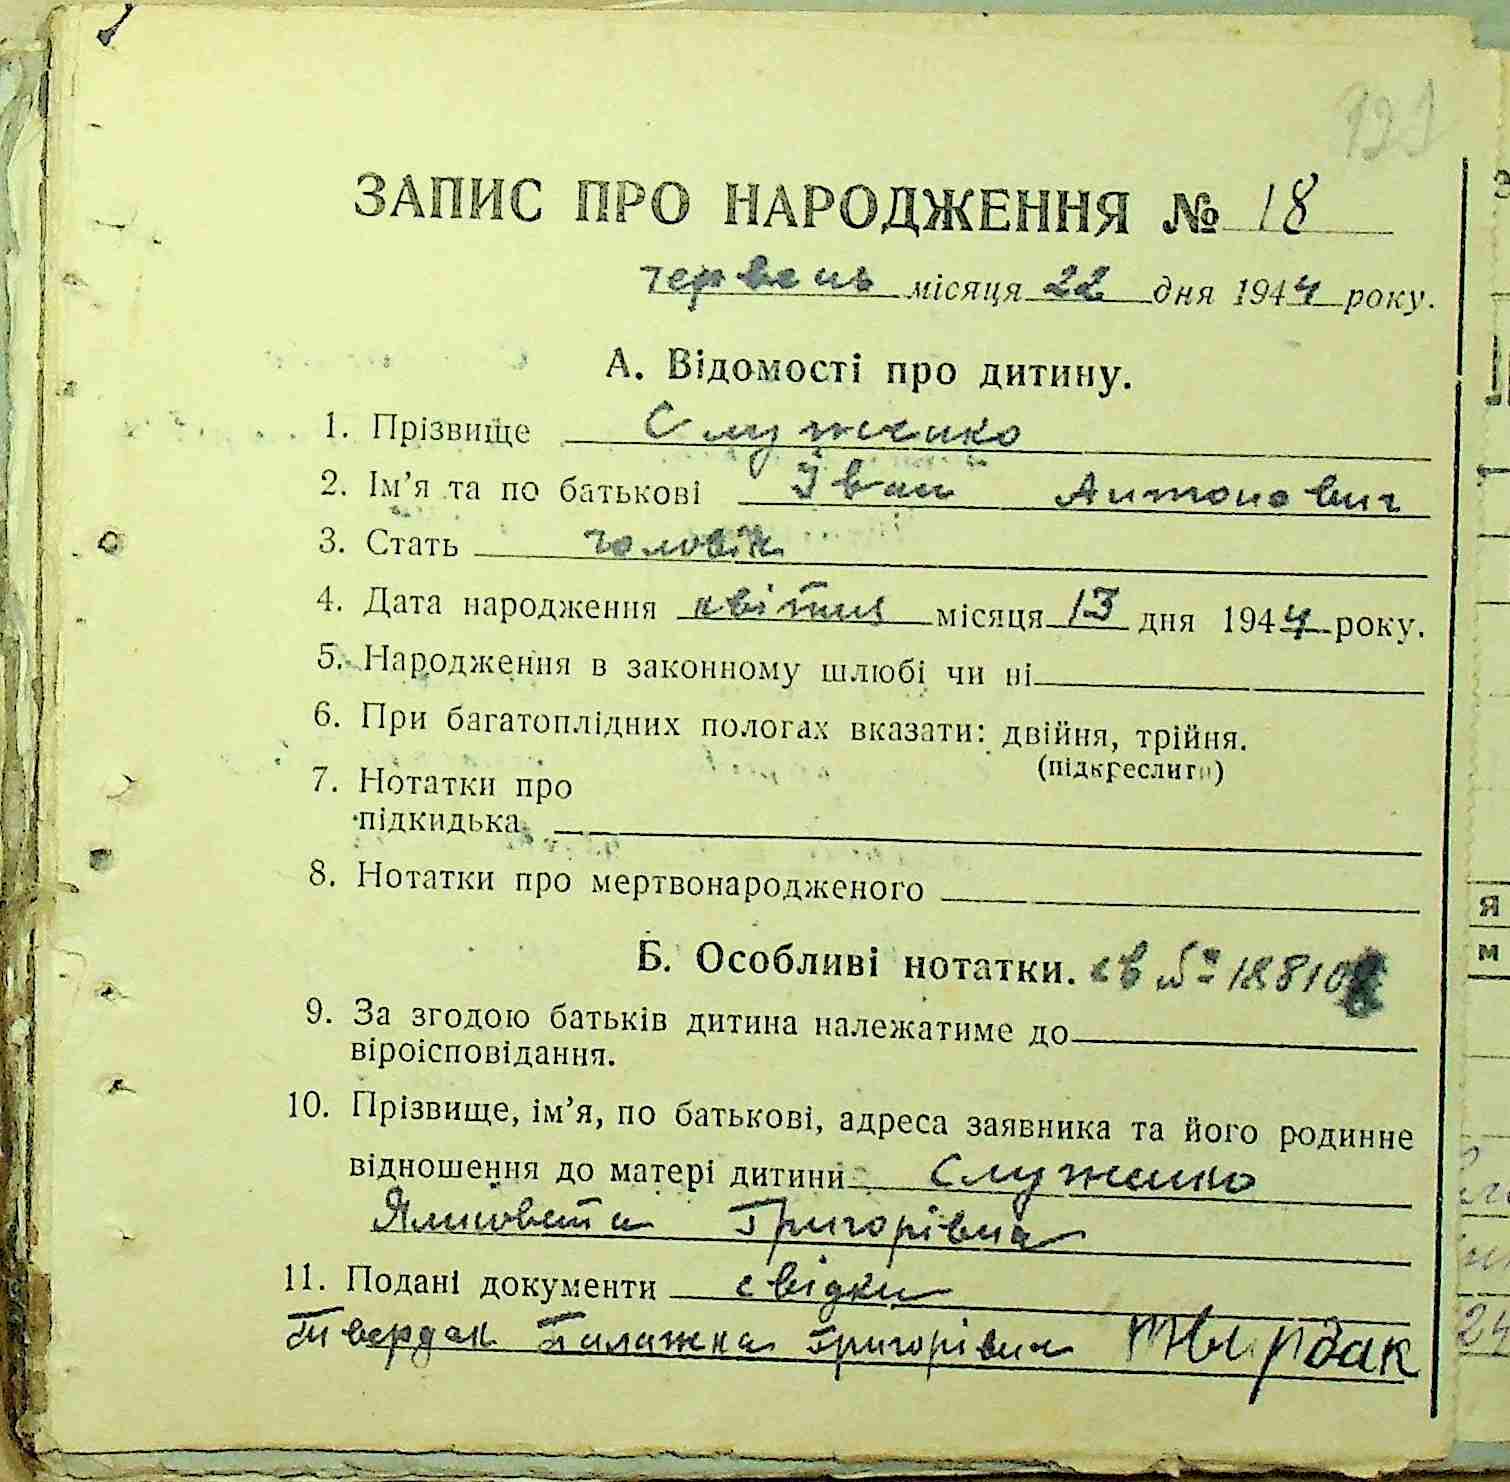 ЗАПИС ПРО НАРОДЖЕННЯ № 18
червень місяця 22 дня 1944 року.
А. Відомості про дитину.
1. Прізвище Служенко
2. Ім'я та по батькові Іван Антонович
3. Стать чоловік
4. Дата народження квітня місяця 13 дня 1944 року.
5. Народження в законному шлюбі чи ні
6. При багатоплідних пологах вказати: двійня, трійня.
(підкреслити)
7. Нотатки про
підкидька
8. Нотатки про мертвонародженого
Б. Особливі нотатки. св №
9. За згодою батьків дитина належатиме до
віроісповідання.
10. Прізвище, ім'я, по батькові, адреса заявника та його родинне
відношення до матері дитини Служенко
Ялисовета Григорівна
11. Подані документи свідки
Твердак Палажка Григорівна Твирдак